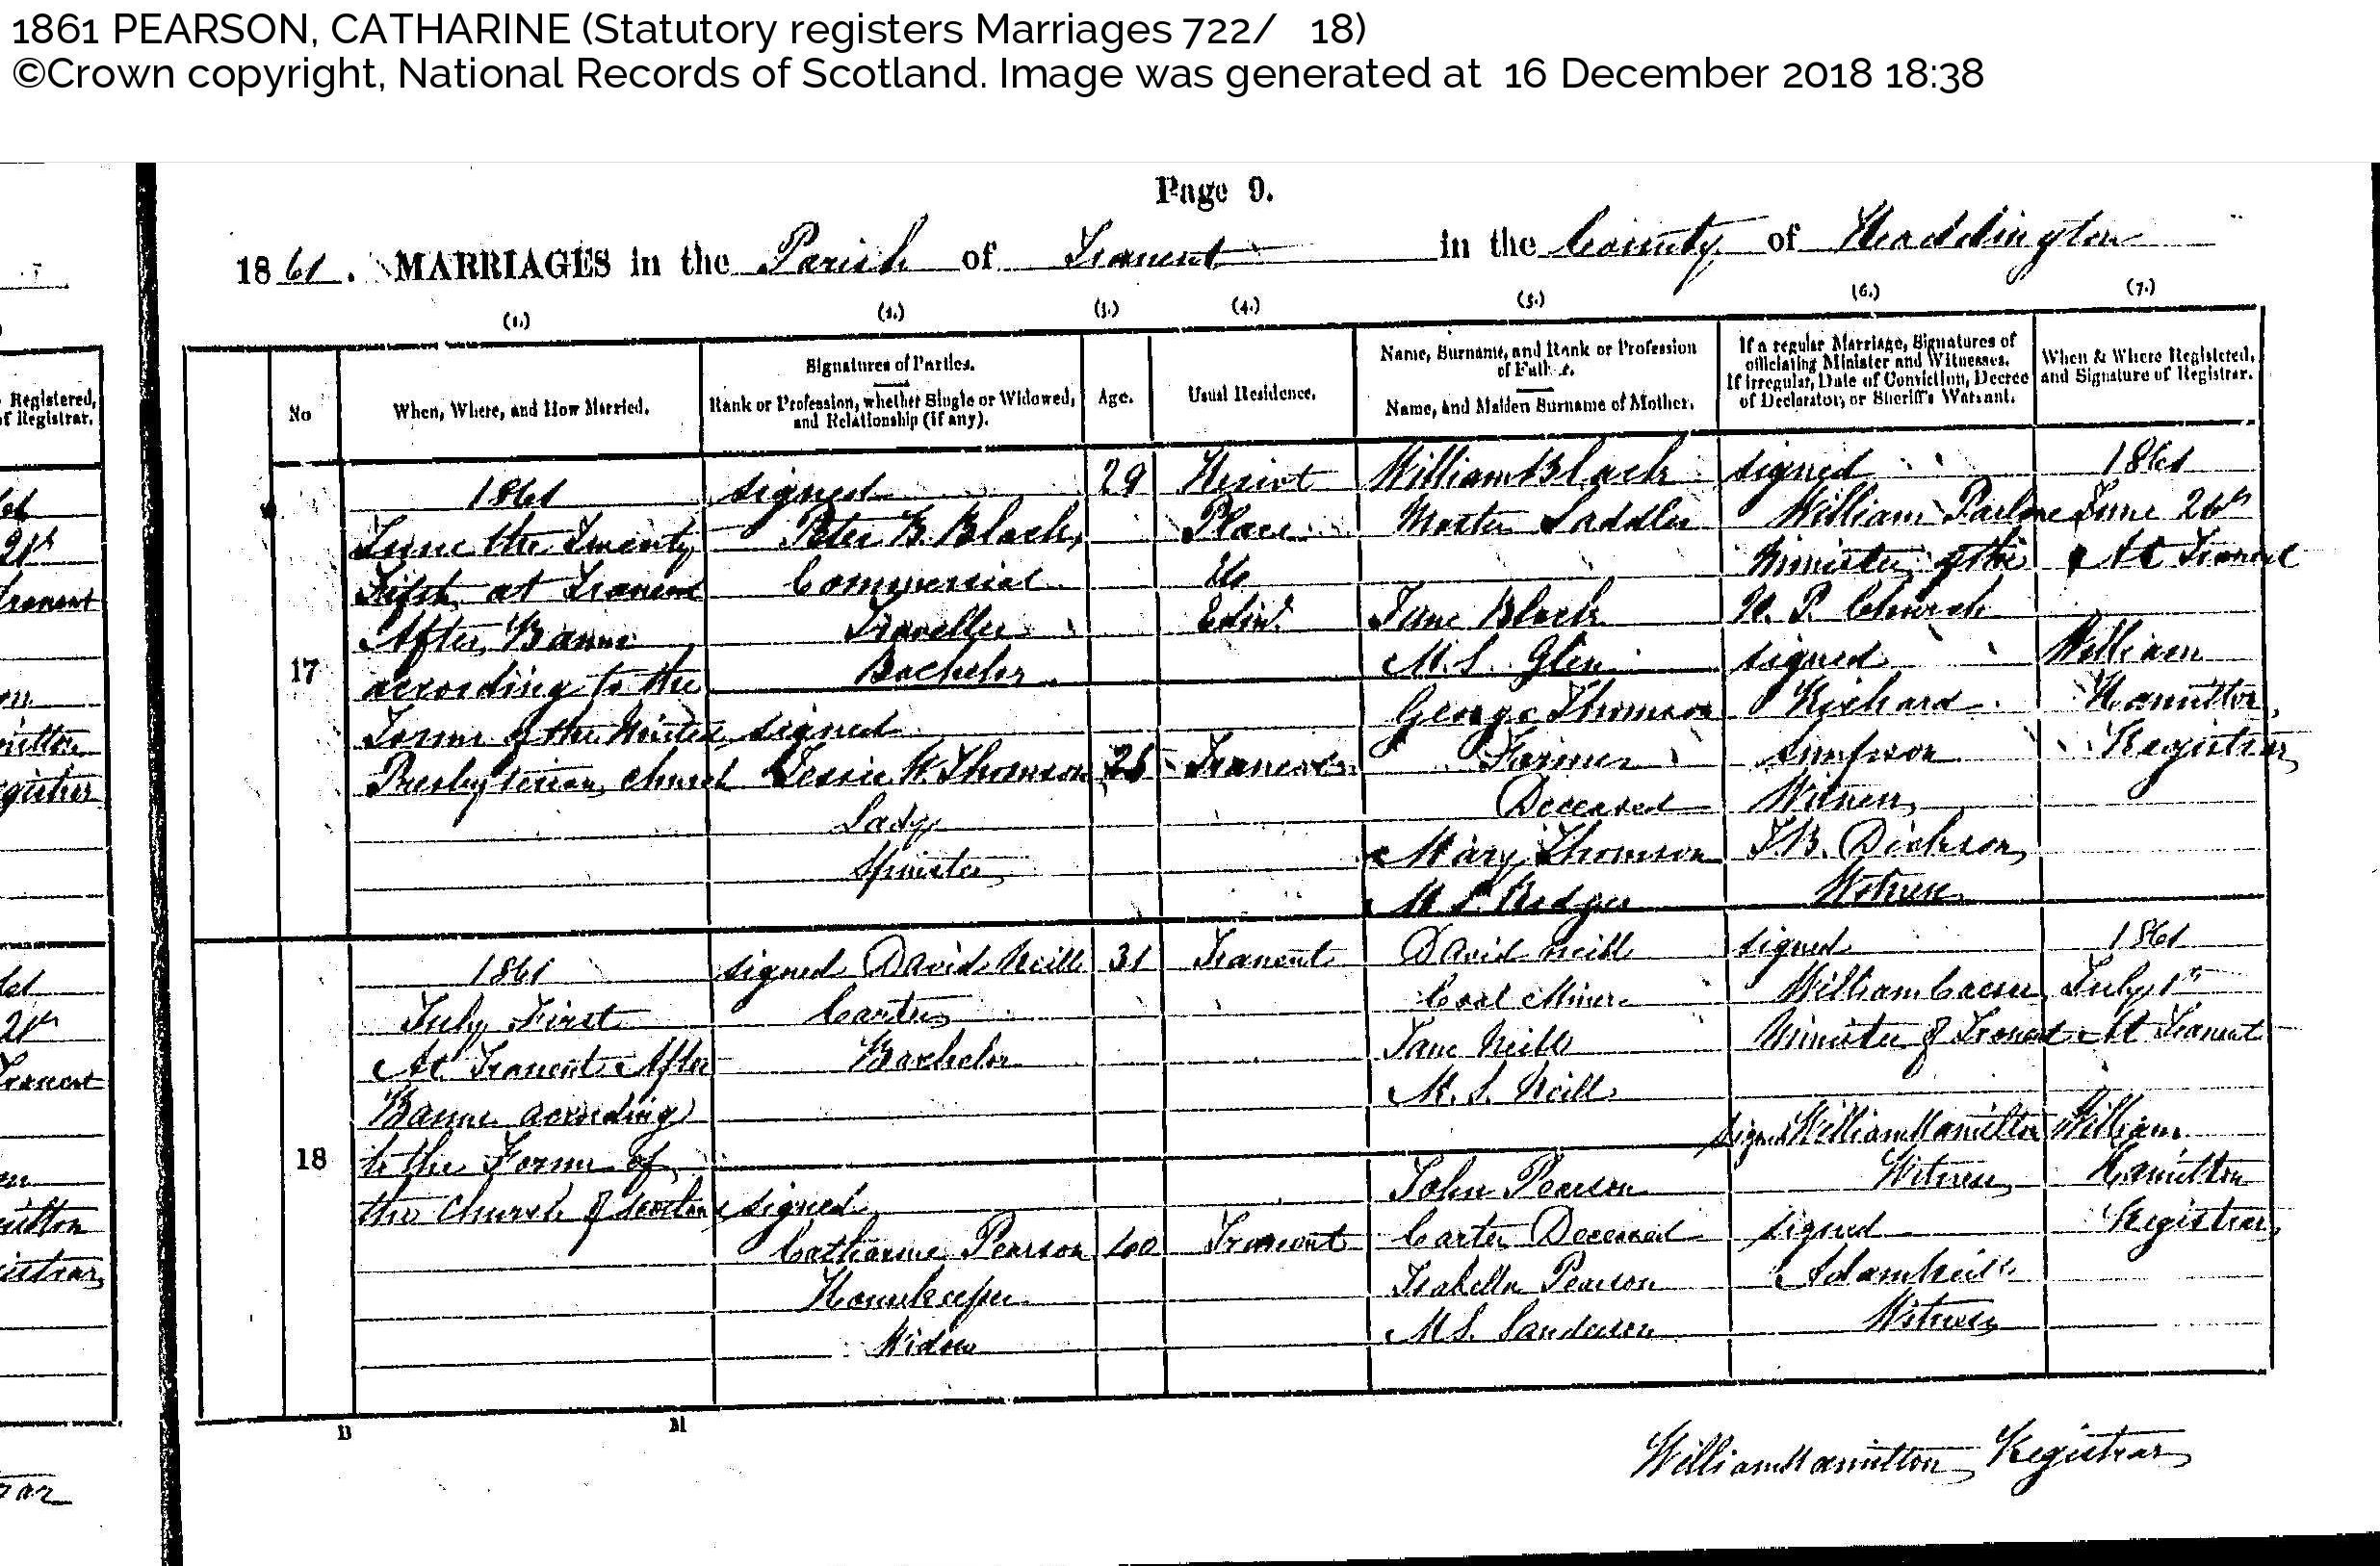 1861 PEARSON, CATHARINE (Statutory registers Marriages 722/ 18)
©Crown copyright, National Records of Scotland. Image was generated at 16 December 2018 18:38
Page 9.
1861. MARRIAGES in the Parish of Tranent in the County of Haddington
(1.) (2.) (3.) (4.) (5.) (6.) (7.)
No
When, Where, and How Married.
Signatures of Parties.
Rank or Profession, whether Single or Widowed,
and Relationship (if any).
Age.
Usual Residence.
Name, Surname, and Rank or Profession
of Father.
Name, and Maiden Surname of Mother.
If a regular Marriage, Signatures of
officiating Minister and Witnesses.
If irregular, Date of Conviction, Decree
of Declarator, or Sheriff's Warrant.
When & Where Registered,
and Signature of Registrar.
Registered,
of Registrar.
17
1861
June the Twenty
Fifth at Tranent
After Banns
according to the
Forms of the United
Presbyterian church
signed
Peter B. Black
Commercial
Traveller
Bachelor
signed
Jessie W. Thomson
Lady
Spinster
29
Heriot
Place
Edinr
Tranent
William Black
Master Saddler
Jane Black
M.S. Glen
George Thomson
Farmer
Deceased
Mary Thomson
M.S.
signed
William
Minister of the
U.P. Church
signed
Richard
Simpson
Witness
J.B. Dickson
Witness
1861
June 26th
At Tranent
William
Hamilton
Registrar
18
1861
July First
At Tranent After
Banns according
to the Forms of
the Church of Scotland
signed David Neill
Carter
Bachelor
signed
Catharine Pearson
Housekeeper
Widow
31
40
Tranent
Tranent
David Neill
Coal Miner
Jane Neill
M.S. Neill
John Pearson
Carter Deceased
Isabella Pearson
M.S. Sanderson
signed
William Caesar
Minister of Tranent
signed William Hamilton
Witness
signed
Adam Neill
Witness
1861
July 1st
At Tranent
William
Hamilton
Registrar
B M
William Hamilton Registrar